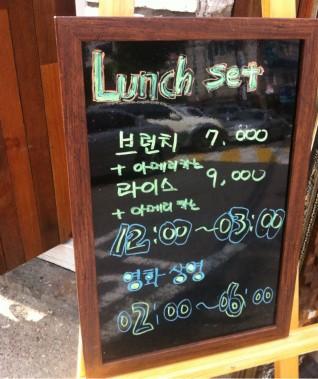 Lunch set
브런치 7,000
+ 아메리카노
라이스 9,000
+ 아메리카노
12:00~03:00
영화 상영
02:00~06:00